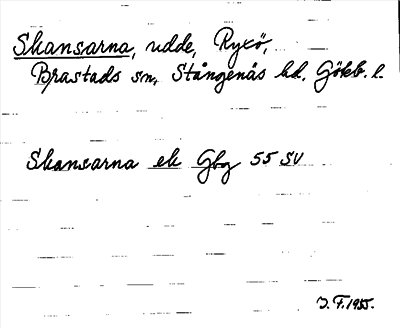 Skansarna, udde, Ryxö,
Brastads sn, Stångenäs hd, Göteb. l.
Skansarna ek Gbg 55 SV
J. F. 1955.